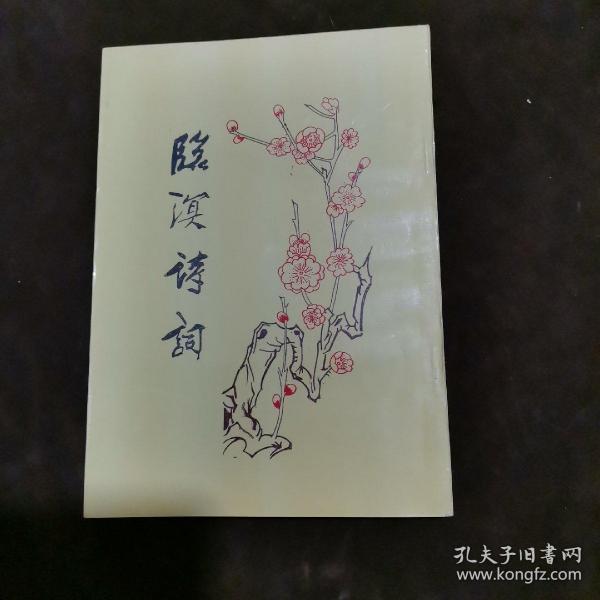 臨溟诗詞
孔夫子旧書网
www.kongfz.com